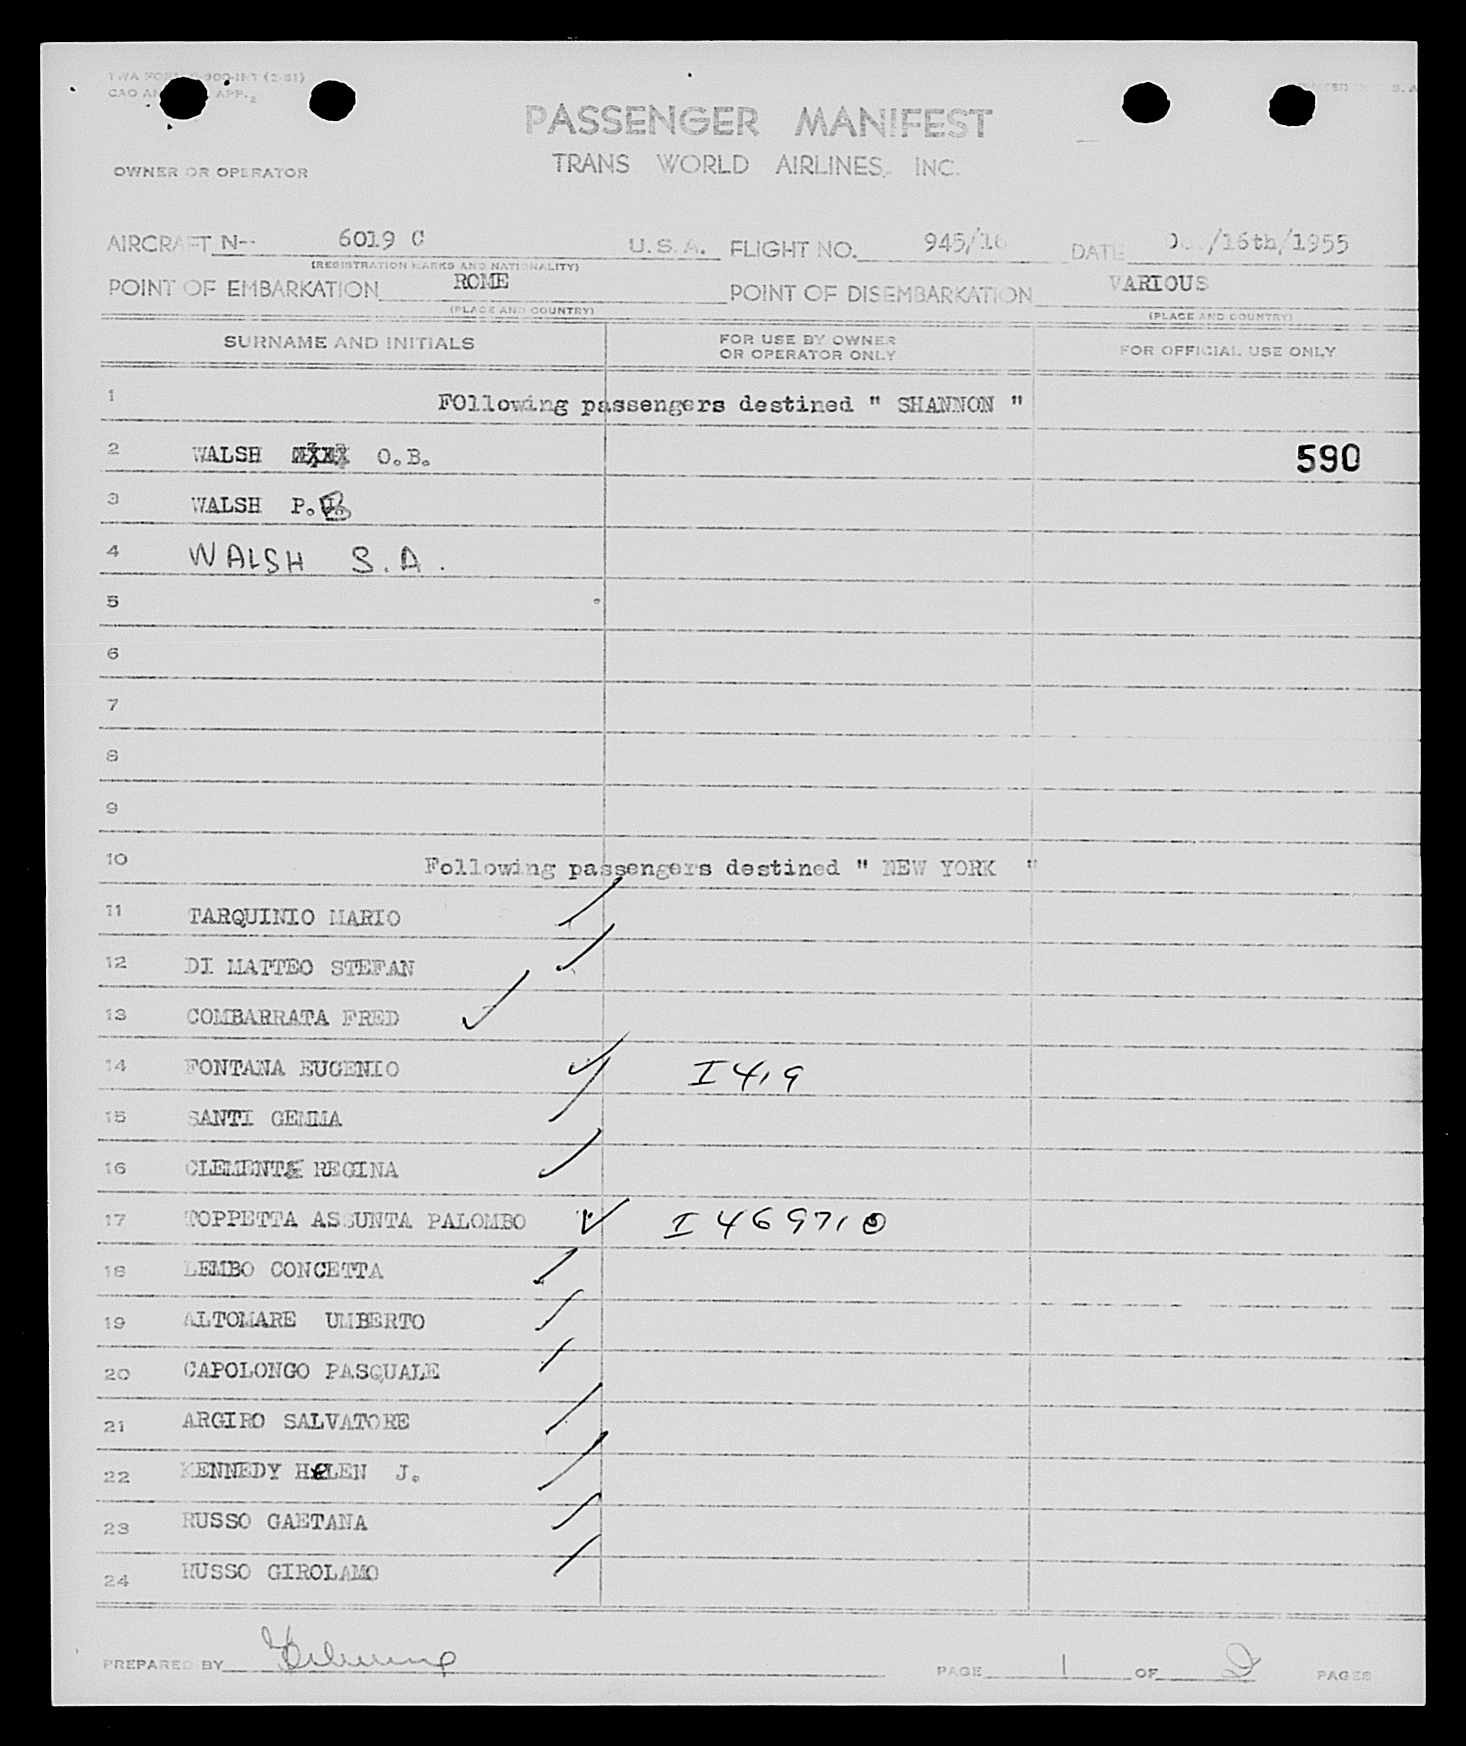 TWA FORM
CAO AN APP. 2
PASSENGER MANIFEST
TRANS WORLD AIRLINES, INC.
OWNER OR OPERATOR
AIRCRAFT N-- 6019 C U.S.A. FLIGHT NO. 945/16 DATE /16th/1955
(REGISTRATION MARKS AND NATIONALITY)
POINT OF EMBARKATION ROME POINT OF DISEMBARKATION VARIOUS
(PLACE AND COUNTRY) (PLACE AND COUNTRY)
SURNAME AND INITIALS FOR USE BY OWNER OR OPERATOR ONLY FOR OFFICIAL USE ONLY
1 FOllowing passengers destined " SHANNON "
2 WALSH O.B. 590
3 WALSH P.
4 WALSH S.A.
5
6
7
8
9
10 Following passengers destined " NEW YORK "
11 TARQUINIO MARIO
12 DI MATTEO STEFAN
13 COMBARRATA FRED
14 FONTANA EUGENIO I419
15 SANTI GEMMA
16 CLEMENTE REGINA
17 TOPPETTA ASSUNTA PALOMBO I469710
18 LEMBO CONCETTA
19 ALTOMARE UMBERTO
20 CAPOLONGO PASQUALE
21 ARGIRO SALVATORE
22 KENNEDY HELEN J.
23 RUSSO GAETANA
24 RUSSO GIROLAMO
PREPARED BY PAGE 1 OF 2 PAGES